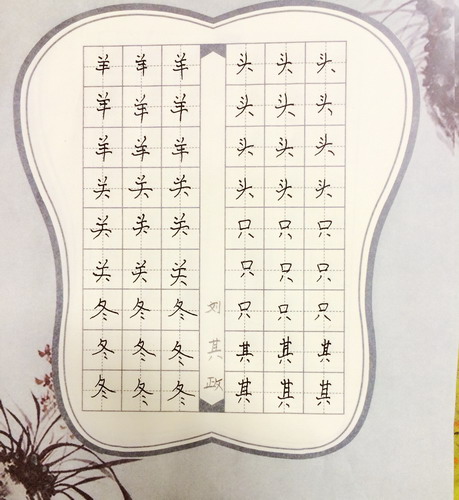 头头头头只只只其其
头头头头只只只其其
头头头头只只只其其
刘其政
羊羊羊关关关冬冬冬
羊羊羊关关关冬冬冬
羊羊羊关关关冬冬冬